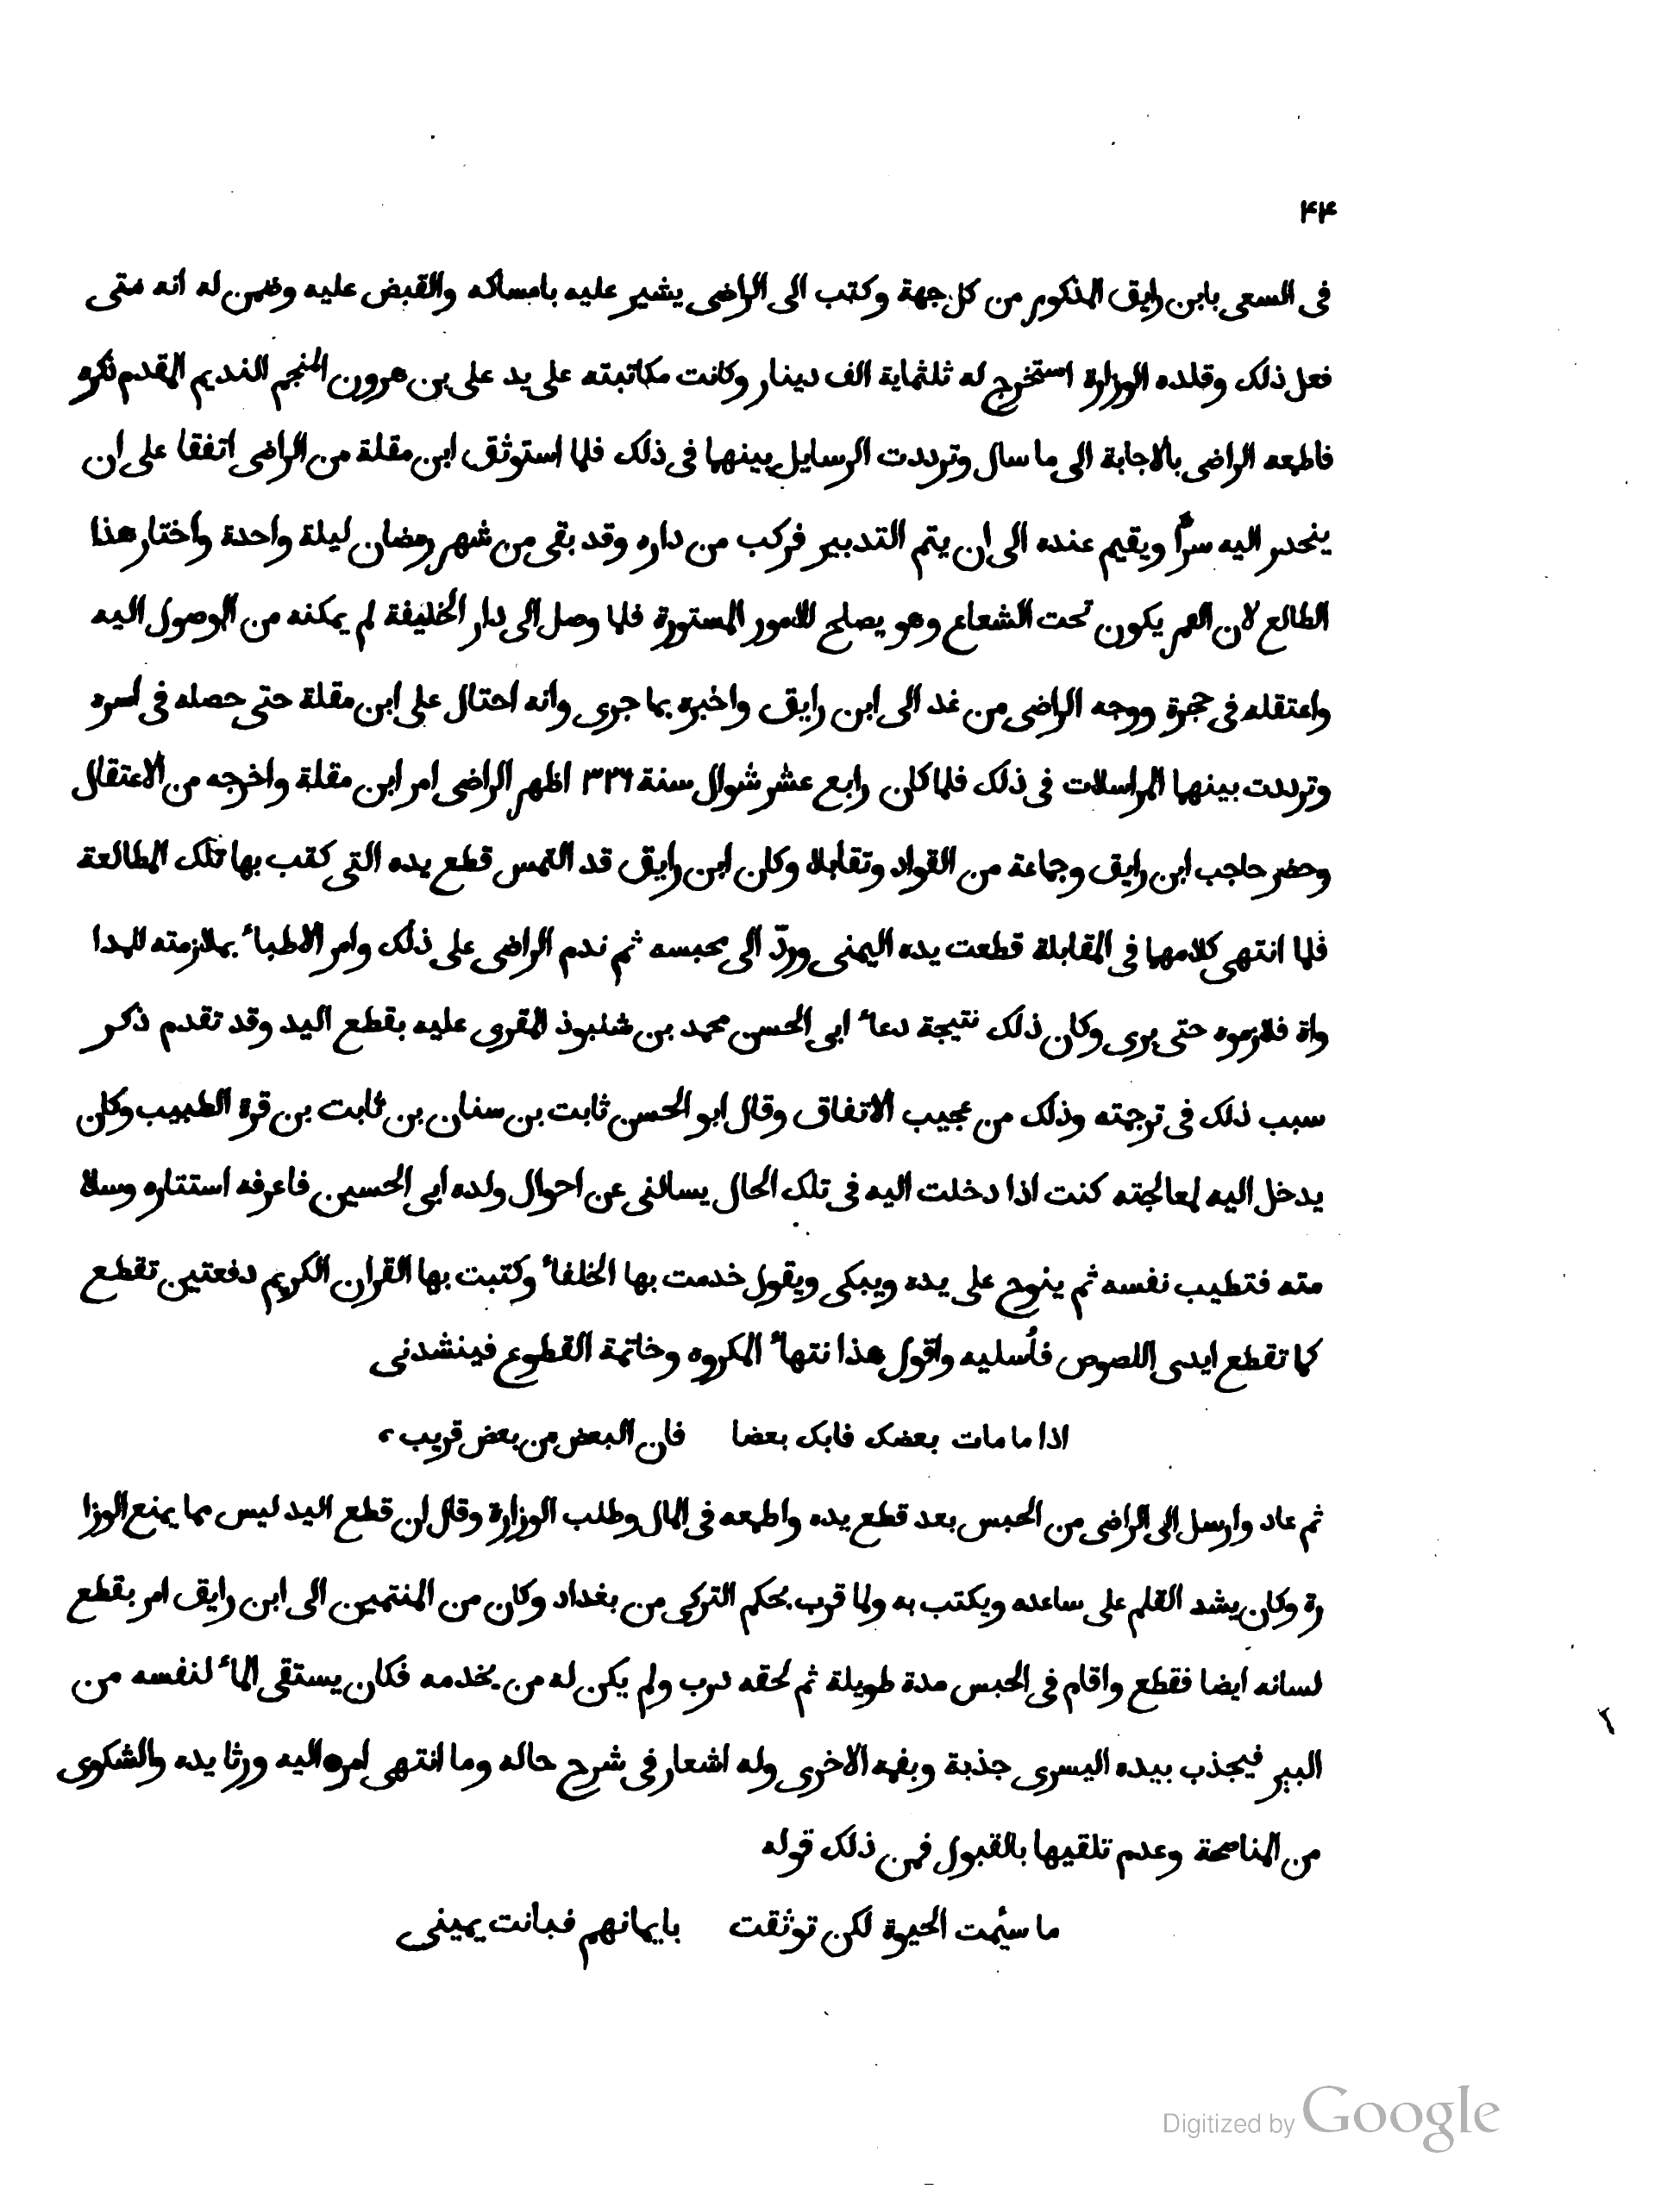 ٤٤
فى السعى بابن رايق المذكور من كل جهة وكتب الى الراضى يشير عليه بامساكه والقبض عليه وضمن له انه متى
فعل ذلك وقلده الوزارة استخرج له ثلثماية الف دينار وكانت مكاتبته على يد على بن هرون المنجم النديم المقدم ذكره
فاطمعه الراضى بالاجابة الى ما سال وترددت الرسايل بينهما فى ذلك فلما استوثق ابن مقلة من الراضى اتفقا على ان
ينحدر اليه سرّا ويقيم عنده الى ان يتم التدبير فركب من داره وقد بقى من شهر رمضان ليلة واحدة واختار هذا
الطالع لان القمر يكون تحت الشعاع وهو يصلح للامور المستورة فلما وصل الى دار الخليفة لم يمكنه من الوصول اليه
واعتقله فى حجرة ووجه الراضى من غد الى ابن رايق واخبره بما جرى وانه احتال على ابن مقلة حتى حصله فى اسره
وترددت بينهما المراسلات فى ذلك فلما كان رابع عشر شوال سنة ٣٢٦ اظهر الراضى امر ابن مقلة واخرجه من الاعتقال
وحضر حاجب ابن رايق وجماعة من القواد وتقابلا وكان ابن رايق قد التمس قطع يده التى كتب بها تلك المطالعة
فلما انتهى كلامهما فى المقابلة قطعت يده اليمنى وردّ الى محبسه ثم ندم الراضى على ذلك وامر الاطباء بملازمته للمدا
واة فلازموه حتى برى وكان ذلك نتيجة دعاء ابى الحسن محمد بن شنبوذ المقرى عليه بقطع اليد وقد تقدم ذكر
سبب ذلك فى ترجمته وذلك من عجيب الاتفاق وقال ابو الحسن ثابت بن سنان بن ثابت بن قرة الطبيب وكان
يدخل اليه لمعالجته كنت اذا دخلت اليه فى تلك الحال يسالنى عن احوال ولده ابى الحسين فاعرفه استتاره وسلا
مته فتطيب نفسه ثم ينوح على يده ويبكى ويقول خدمت بها الخلفاء وكتبت بها القران الكريم دفعتين تقطع
كما تقطع ايدى اللصوص فأسليه واقول هذا نتهاء المكروه وخاتمة القطوع فينشدنى
اذا ما مات بعضك فابك بعضا فان البعض من بعض قريب
ثم عاد وارسل الى الراضى من الحبس بعد قطع يده واطمعه فى المال وطلب الوزارة وقال ان قطع اليد ليس مما يمنع الوزا
رة وكان يشد القلم على ساعده ويكتب به ولما قرب بحكم التركى من بغداد وكان من المنتمين الى ابن رايق امر بقطع
لسانه ايضا فقطع واقام فى الحبس مدة طويلة ثم لحقه درب ولم يكن له من يخدمه فكان يستقى الماء لنفسه من
البير فيجذب بيده اليسرى جذبة وبفمه الاخرى وله اشعار فى شرح حاله وما انتهى امره اليه ورثا يده والشكوى
من المناصحة وعدم تلقيها بالقبول فمن ذلك قوله
ما سئمت الحيوة لكن توثقت بايمانهم فبانت يمينى
Digitized by Google